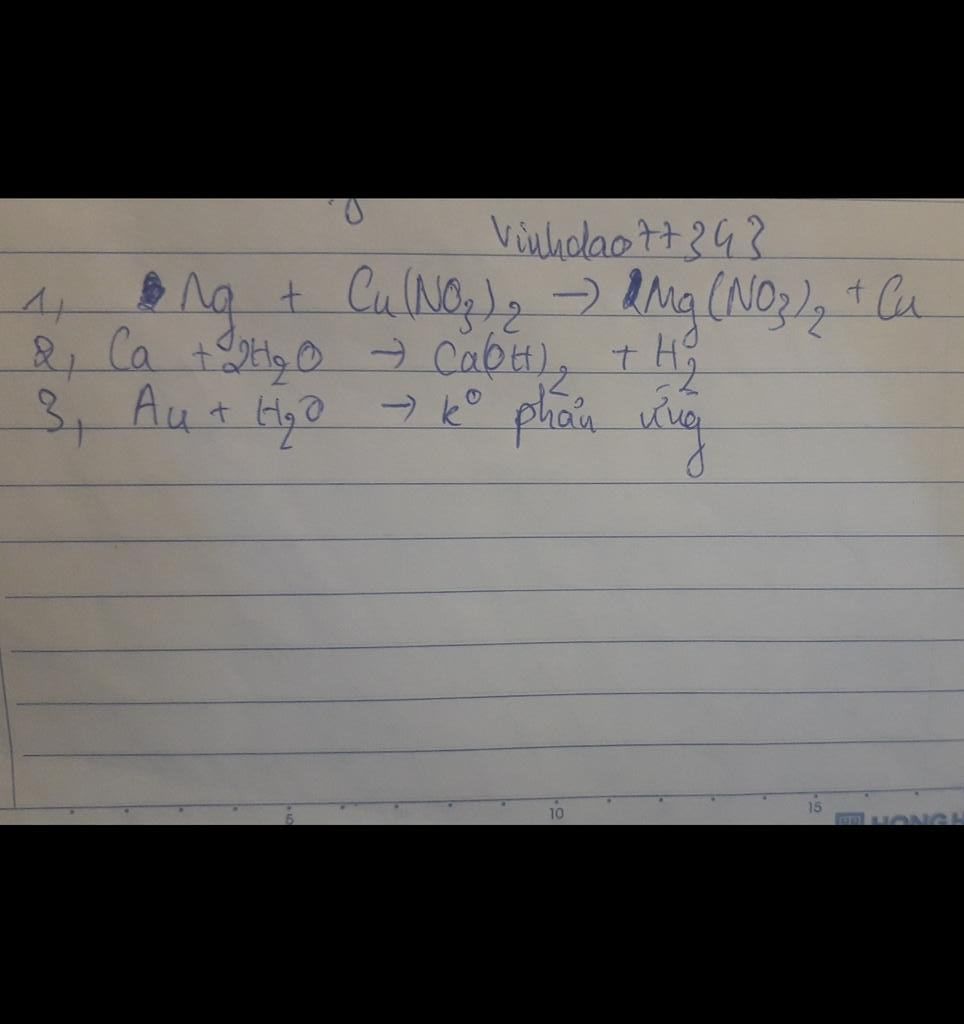 Vinhdao77343
1, Mg + Cu(NO3)2 → Mg(NO3)2 + Cu
2, Ca + 2H2O → Ca(OH)2 + H2
3, Au + H2O → k° phản ứng
5 10 15
HONG H